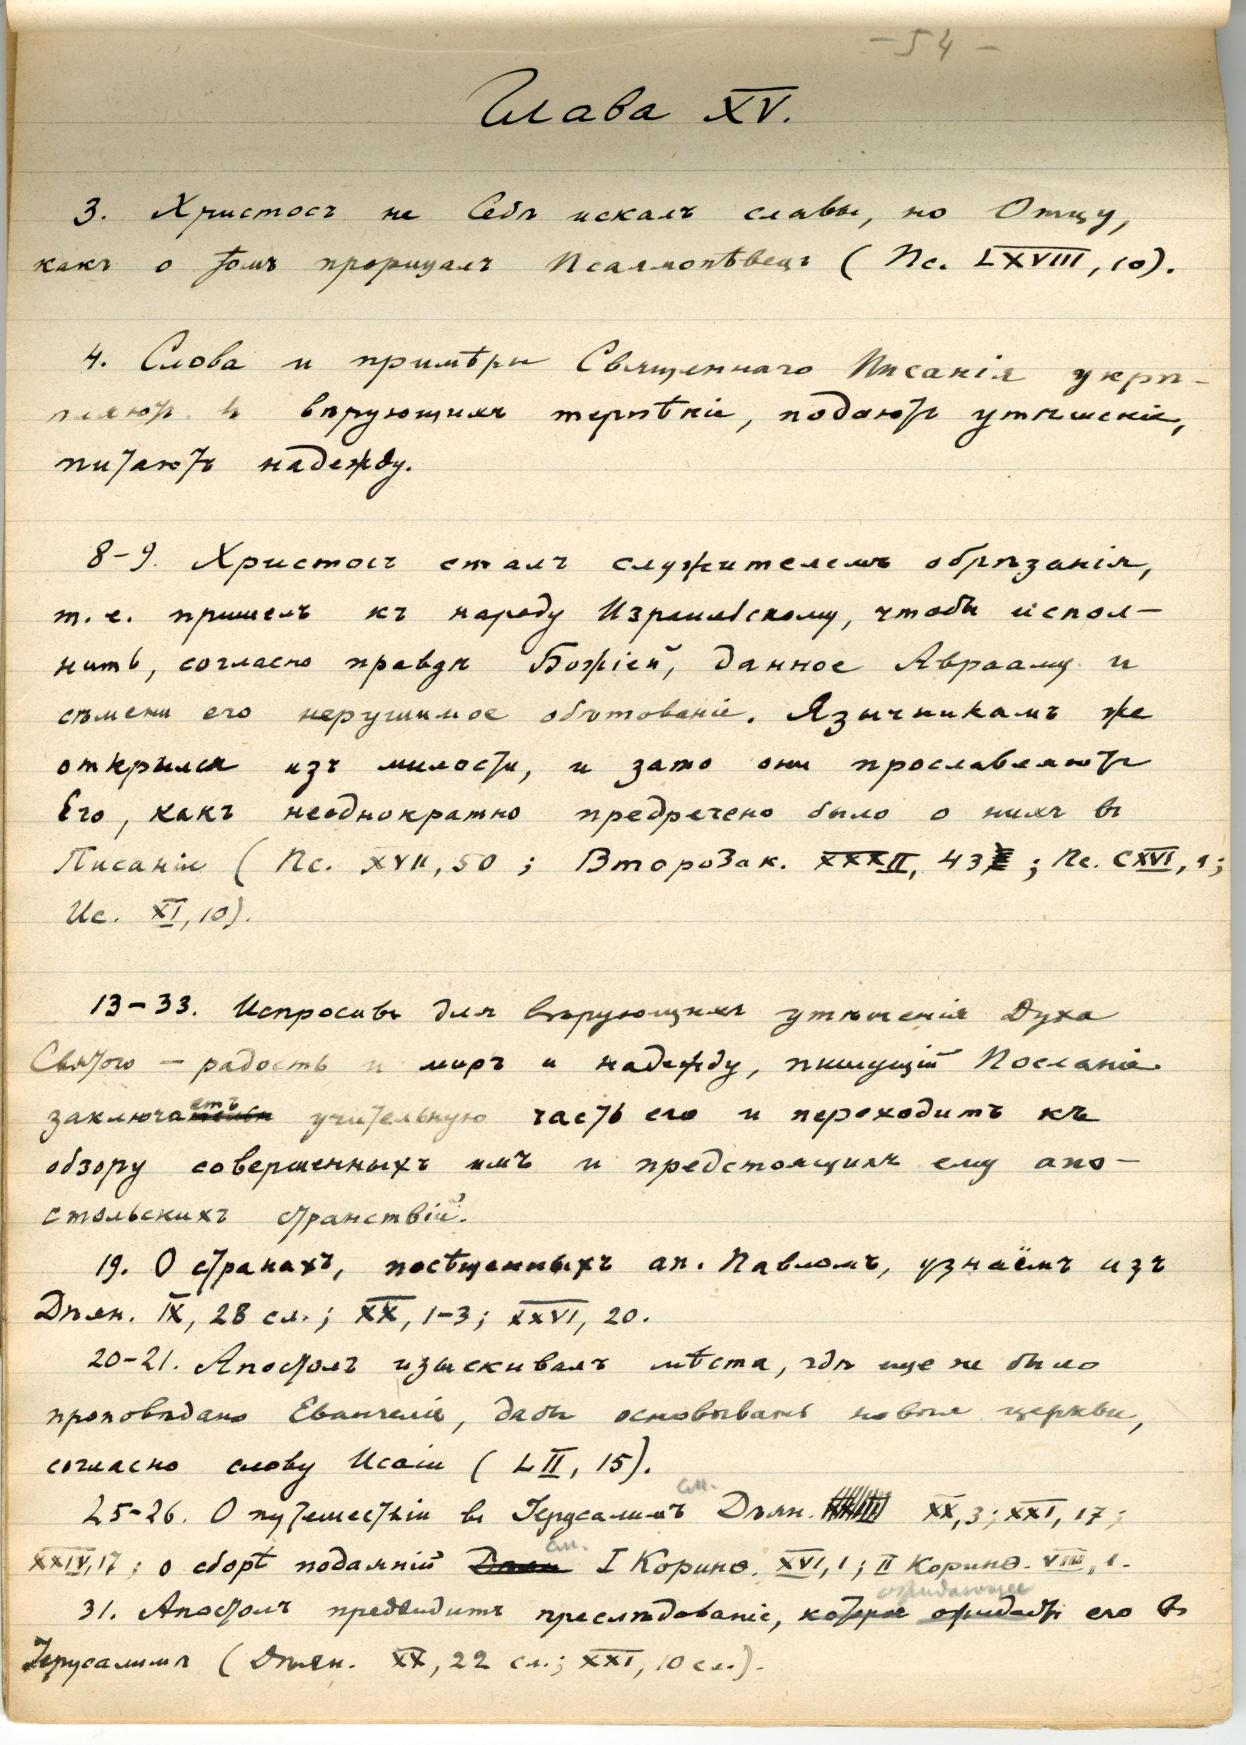 -54-
Глава XV.
3. Христосъ не Себѣ искалъ славы, но Отцу,
какъ о томъ прорицалъ Псалмопѣвецъ (Пс. LXVIII, 10).
4. Слова и примѣры Священнаго Писанія укрѣ-
пляютъ въ вѣрующихъ терпѣніе, подаютъ утѣшеніе,
питаютъ надежду.
8-9. Христосъ сталъ служителемъ обрѣзанія,
т. е. пришелъ къ народу Израильскому, чтобы испол-
нить, согласно правдѣ Божіей, данное Аврааму и
сѣмени его нерушимое обѣтованіе. Язычникамъ же
открылся изъ милости, и зато они прославляютъ
Его, какъ неоднократно предречено было о нихъ въ
Писаніи (Пс. XVII, 50; ВтороЗак. XXXII, 43; Пс. CXVI, 1;
Ис. XI, 10).
13-33. Испросивъ для вѣрующихъ утѣшенія Духа
Святого — радость и миръ и надежду, пишущій Посланіе
заключаетъ учительную часть его и переходитъ къ
обзору совершенныхъ имъ и предстоящихъ ему апо-
стольскихъ странствій.
19. О странахъ, посѣщенныхъ ап. Павломъ, узнаёмъ изъ
Дѣян. IX, 28 сл.; XX, 1-3; XXVI, 20.
20-21. Апостолъ изыскивалъ мѣста, гдѣ еще не было
проповѣдано Евангеліе, дабы основывать новыя церкви,
согласно слову Исаіи (LII, 15).
25-26. О путешествіи въ Іерусалимъ см. Дѣян. XX, 3; XXI, 17;
XXIV, 17; о сборѣ подаяній см. I Коринѳ. XVI, 1; II Коринѳ. VIII, 1.
31. Апостолъ предвидитъ преслѣдованіе, ожидающее его въ
Іерусалимѣ (Дѣян. XX, 22 сл.; XXI, 10 сл.).